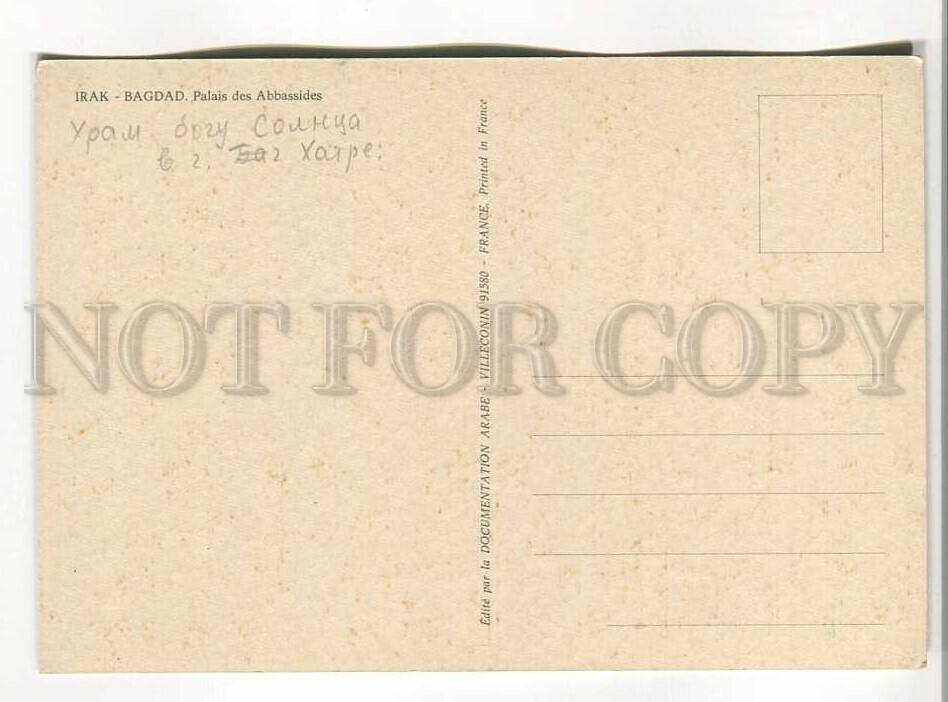 IRAK - BAGDAD. Palais des Abbassides
Храм богу Солнца
в г. Баг Хатре:
Édité par la DOCUMENTATION ARABE - VILLECONIN 91580 - FRANCE. Printed in France
NOT FOR COPY